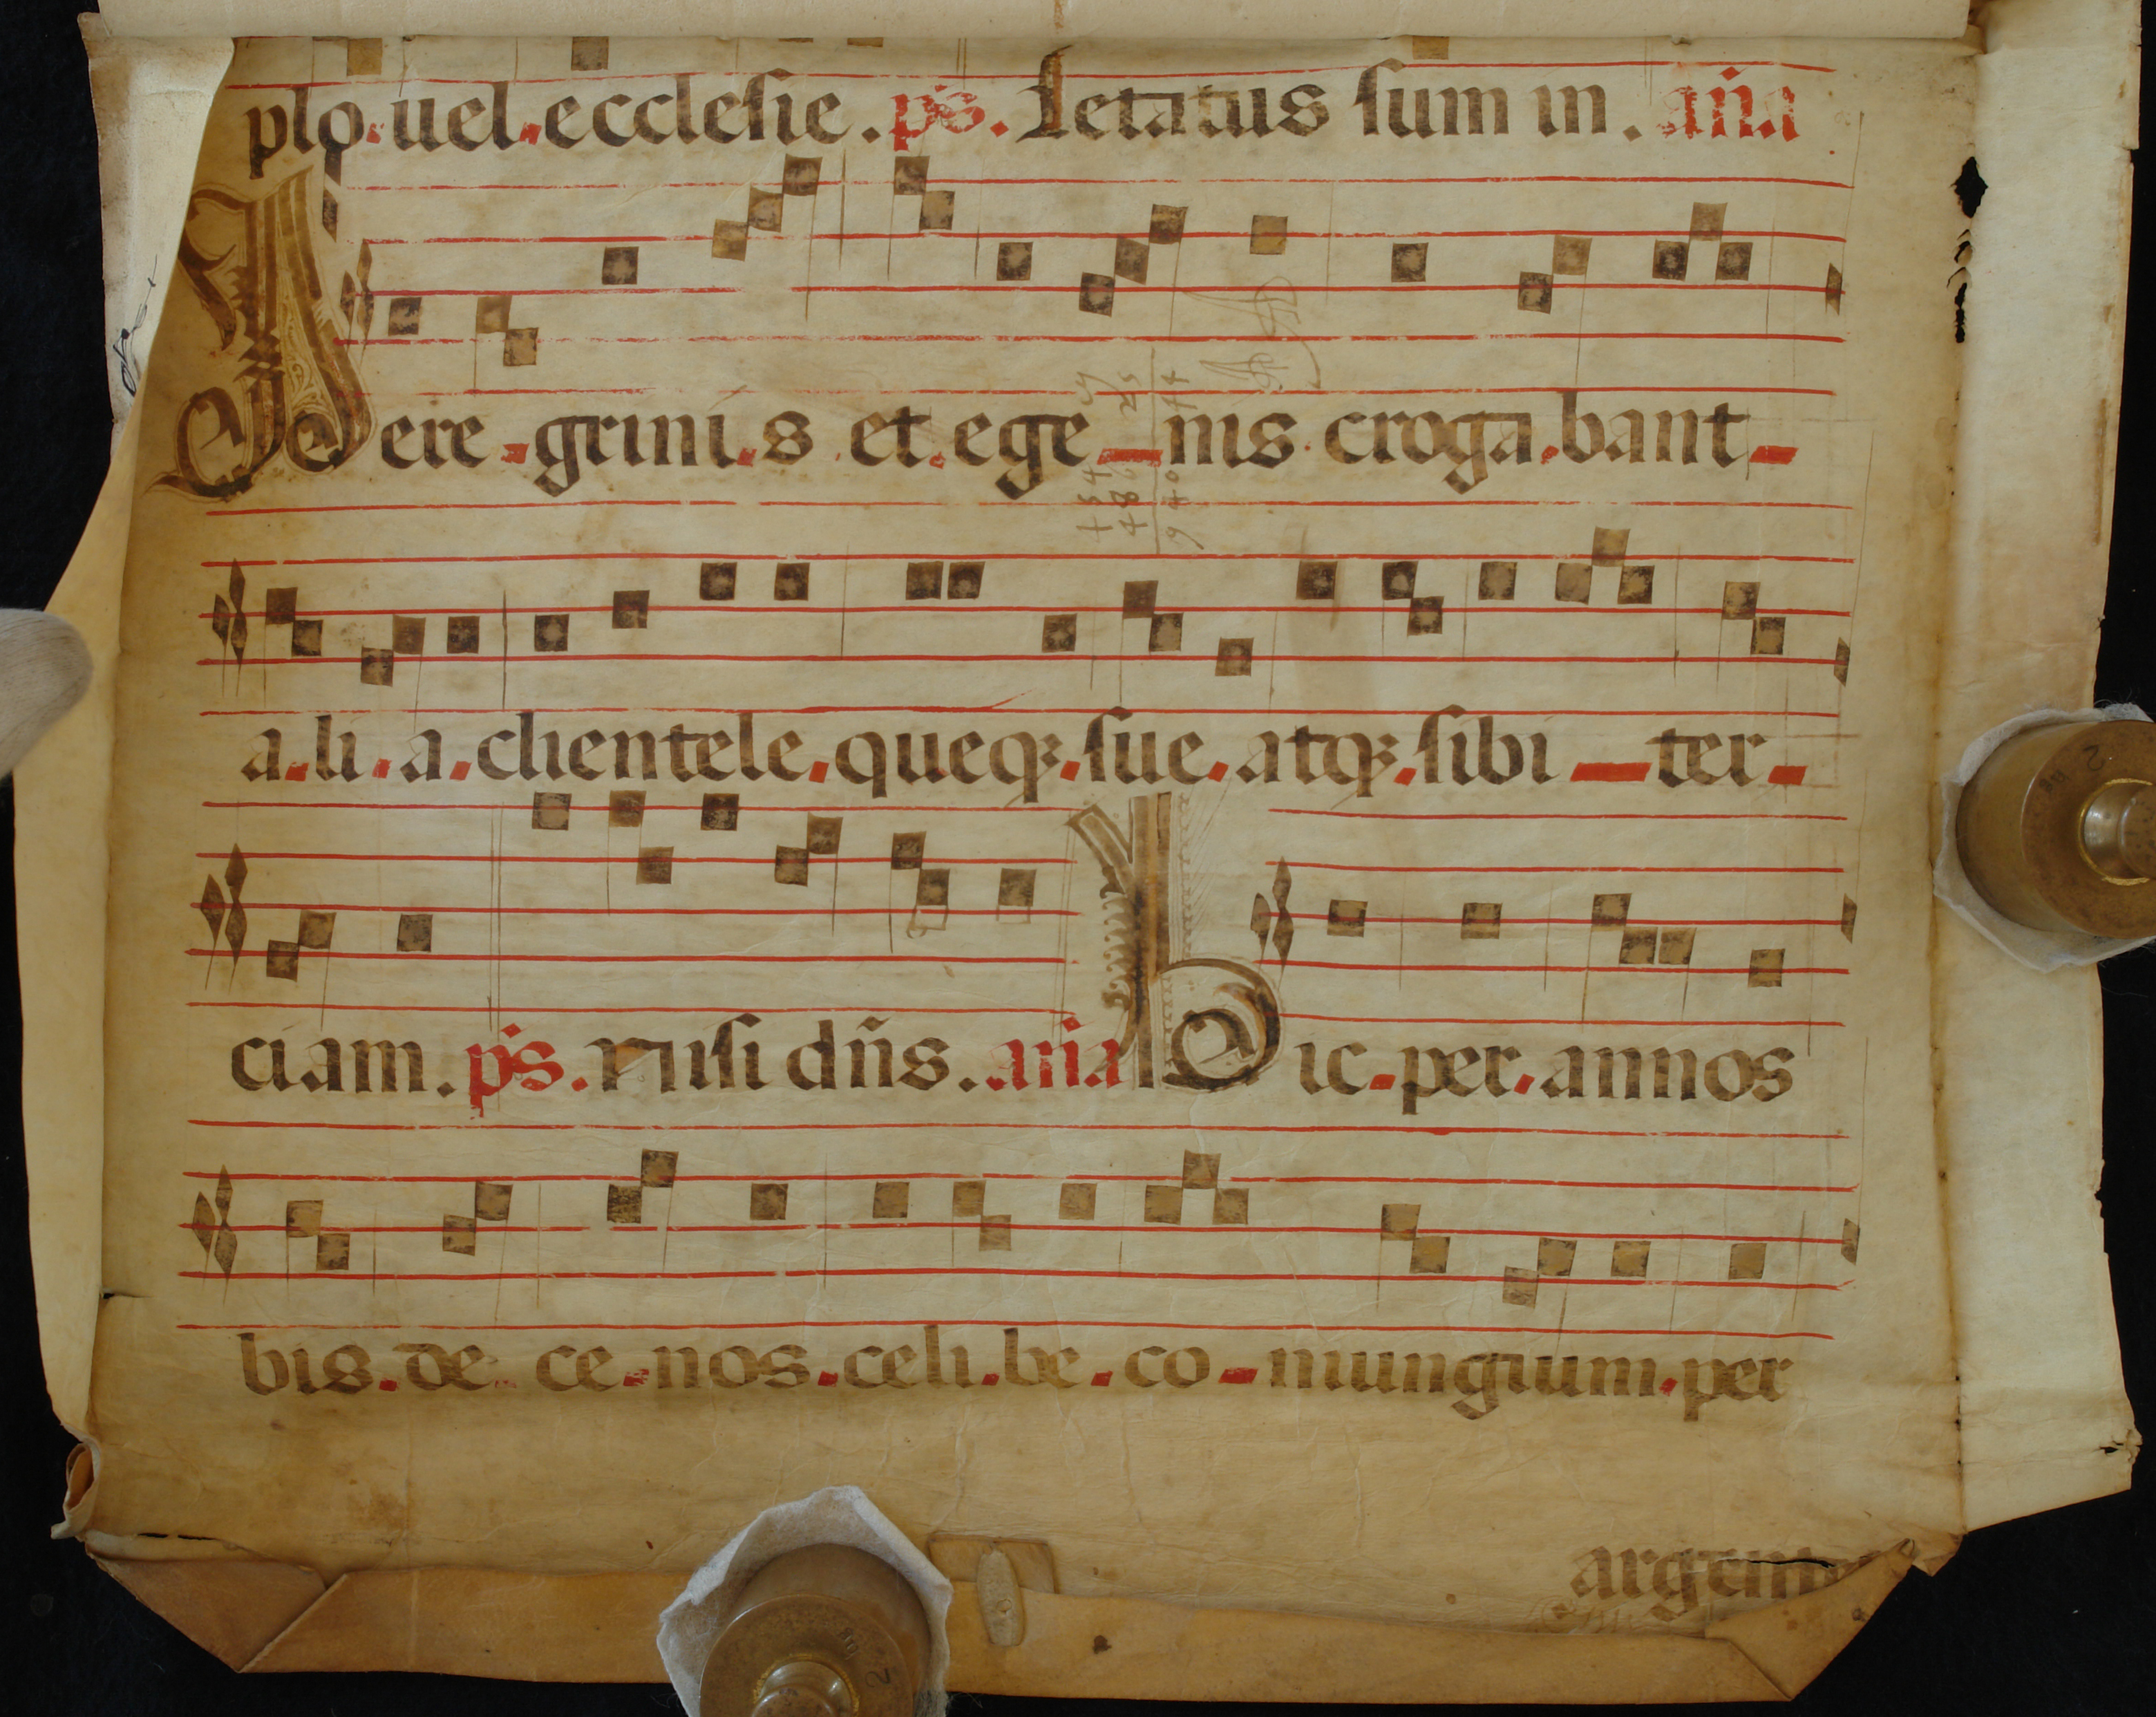 plo uel ecclesie. ps. Letatus sum in. aña
Peregrinis et egenis erogabant
alia clientele queqꝫ sue atqꝫ sibi ter
ciam. ps. Nisi dñs. aña Hic per annos
bis decenos celibe coniungium per